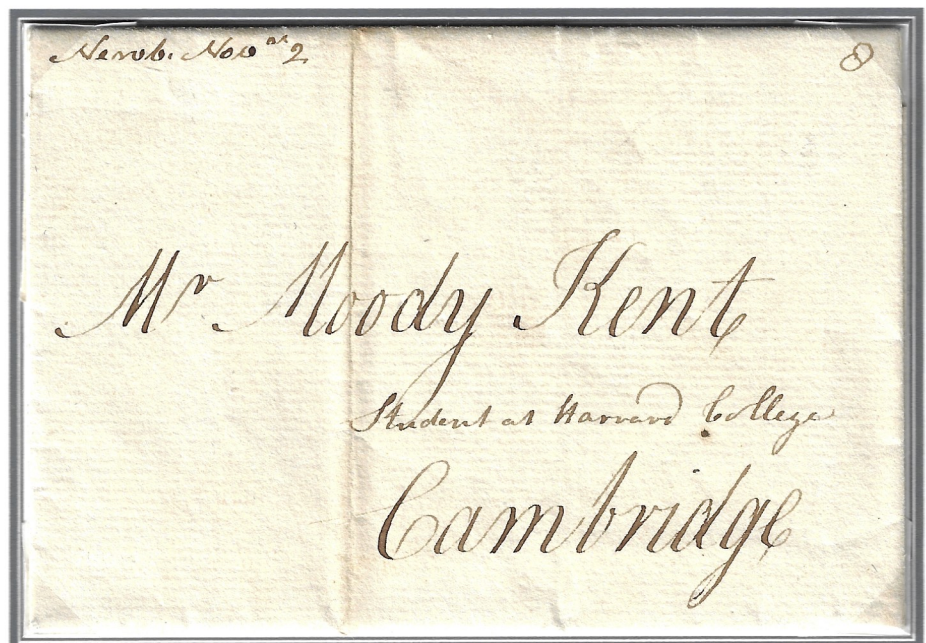 Newb. Nov 2 8
Mr Moody Kent
Student at Harvard College
Cambridge